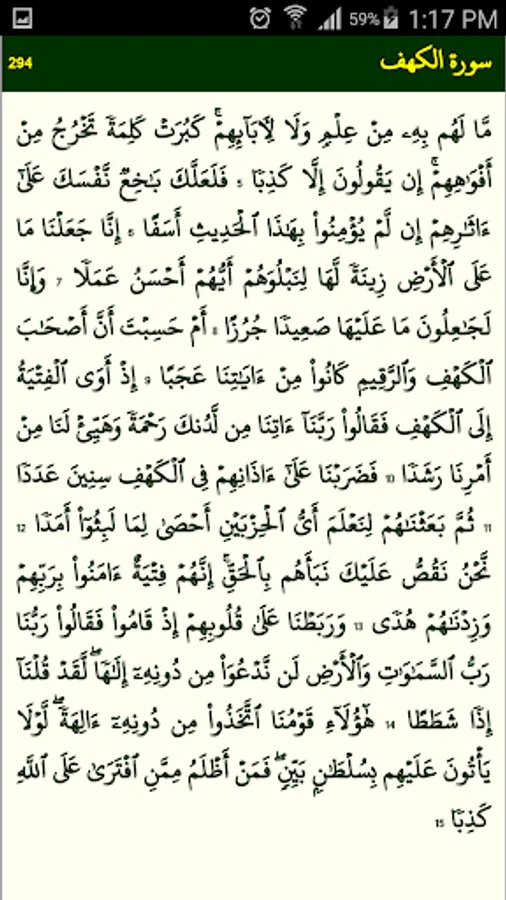 59% 1:17 PM
294 سورة الكهف
مَّا لَهُم بِهِۦ مِنْ عِلْمٍ وَلَا لِأٓبَآئِهِمْ ۚ كَبُرَتْ كَلِمَةً تَخْرُجُ مِنْ
أَفْوَٰهِهِمْ ۚ إِن يَقُولُونَ إِلَّا كَذِبًا 5 فَلَعَلَّكَ بَٰخِعٌ نَّفْسَكَ عَلَىٰٓ
ءَاثَٰرِهِمْ إِن لَّمْ يُؤْمِنُوا۟ بِهَٰذَا ٱلْحَدِيثِ أَسَفًا 6 إِنَّا جَعَلْنَا مَا
عَلَى ٱلْأَرْضِ زِينَةً لَّهَا لِنَبْلُوَهُمْ أَيُّهُمْ أَحْسَنُ عَمَلًا 7 وَإِنَّا
لَجَٰعِلُونَ مَا عَلَيْهَا صَعِيدًا جُرُزًا 8 أَمْ حَسِبْتَ أَنَّ أَصْحَٰبَ
ٱلْكَهْفِ وَٱلرَّقِيمِ كَانُوا۟ مِنْ ءَايَٰتِنَا عَجَبًا 9 إِذْ أَوَى ٱلْفِتْيَةُ
إِلَى ٱلْكَهْفِ فَقَالُوا۟ رَبَّنَآ ءَاتِنَا مِن لَّدُنكَ رَحْمَةً وَهَيِّئْ لَنَا مِنْ
أَمْرِنَا رَشَدًا 10 فَضَرَبْنَا عَلَىٰٓ ءَاذَانِهِمْ فِى ٱلْكَهْفِ سِنِينَ عَدَدًا
11 ثُمَّ بَعَثْنَٰهُمْ لِنَعْلَمَ أَىُّ ٱلْحِزْبَيْنِ أَحْصَىٰ لِمَا لَبِثُوٓا۟ أَمَدًا 12
نَّحْنُ نَقُصُّ عَلَيْكَ نَبَأَهُم بِٱلْحَقِّ ۚ إِنَّهُمْ فِتْيَةٌ ءَامَنُوا۟ بِرَبِّهِمْ
وَزِدْنَٰهُمْ هُدًى 13 وَرَبَطْنَا عَلَىٰ قُلُوبِهِمْ إِذْ قَامُوا۟ فَقَالُوا۟ رَبُّنَا
رَبُّ ٱلسَّمَٰوَٰتِ وَٱلْأَرْضِ لَن نَّدْعُوَا۟ مِن دُونِهِۦٓ إِلَٰهًا ۖ لَّقَدْ قُلْنَآ
إِذًا شَطَطًا 14 هَٰٓؤُلَآءِ قَوْمُنَا ٱتَّخَذُوا۟ مِن دُونِهِۦٓ ءَالِهَةً ۖ لَّوْلَا
يَأْتُونَ عَلَيْهِم بِسُلْطَٰنٍۭ بَيِّنٍ ۖ فَمَنْ أَظْلَمُ مِمَّنِ ٱفْتَرَىٰ عَلَى ٱللَّهِ
كَذِبًا 15